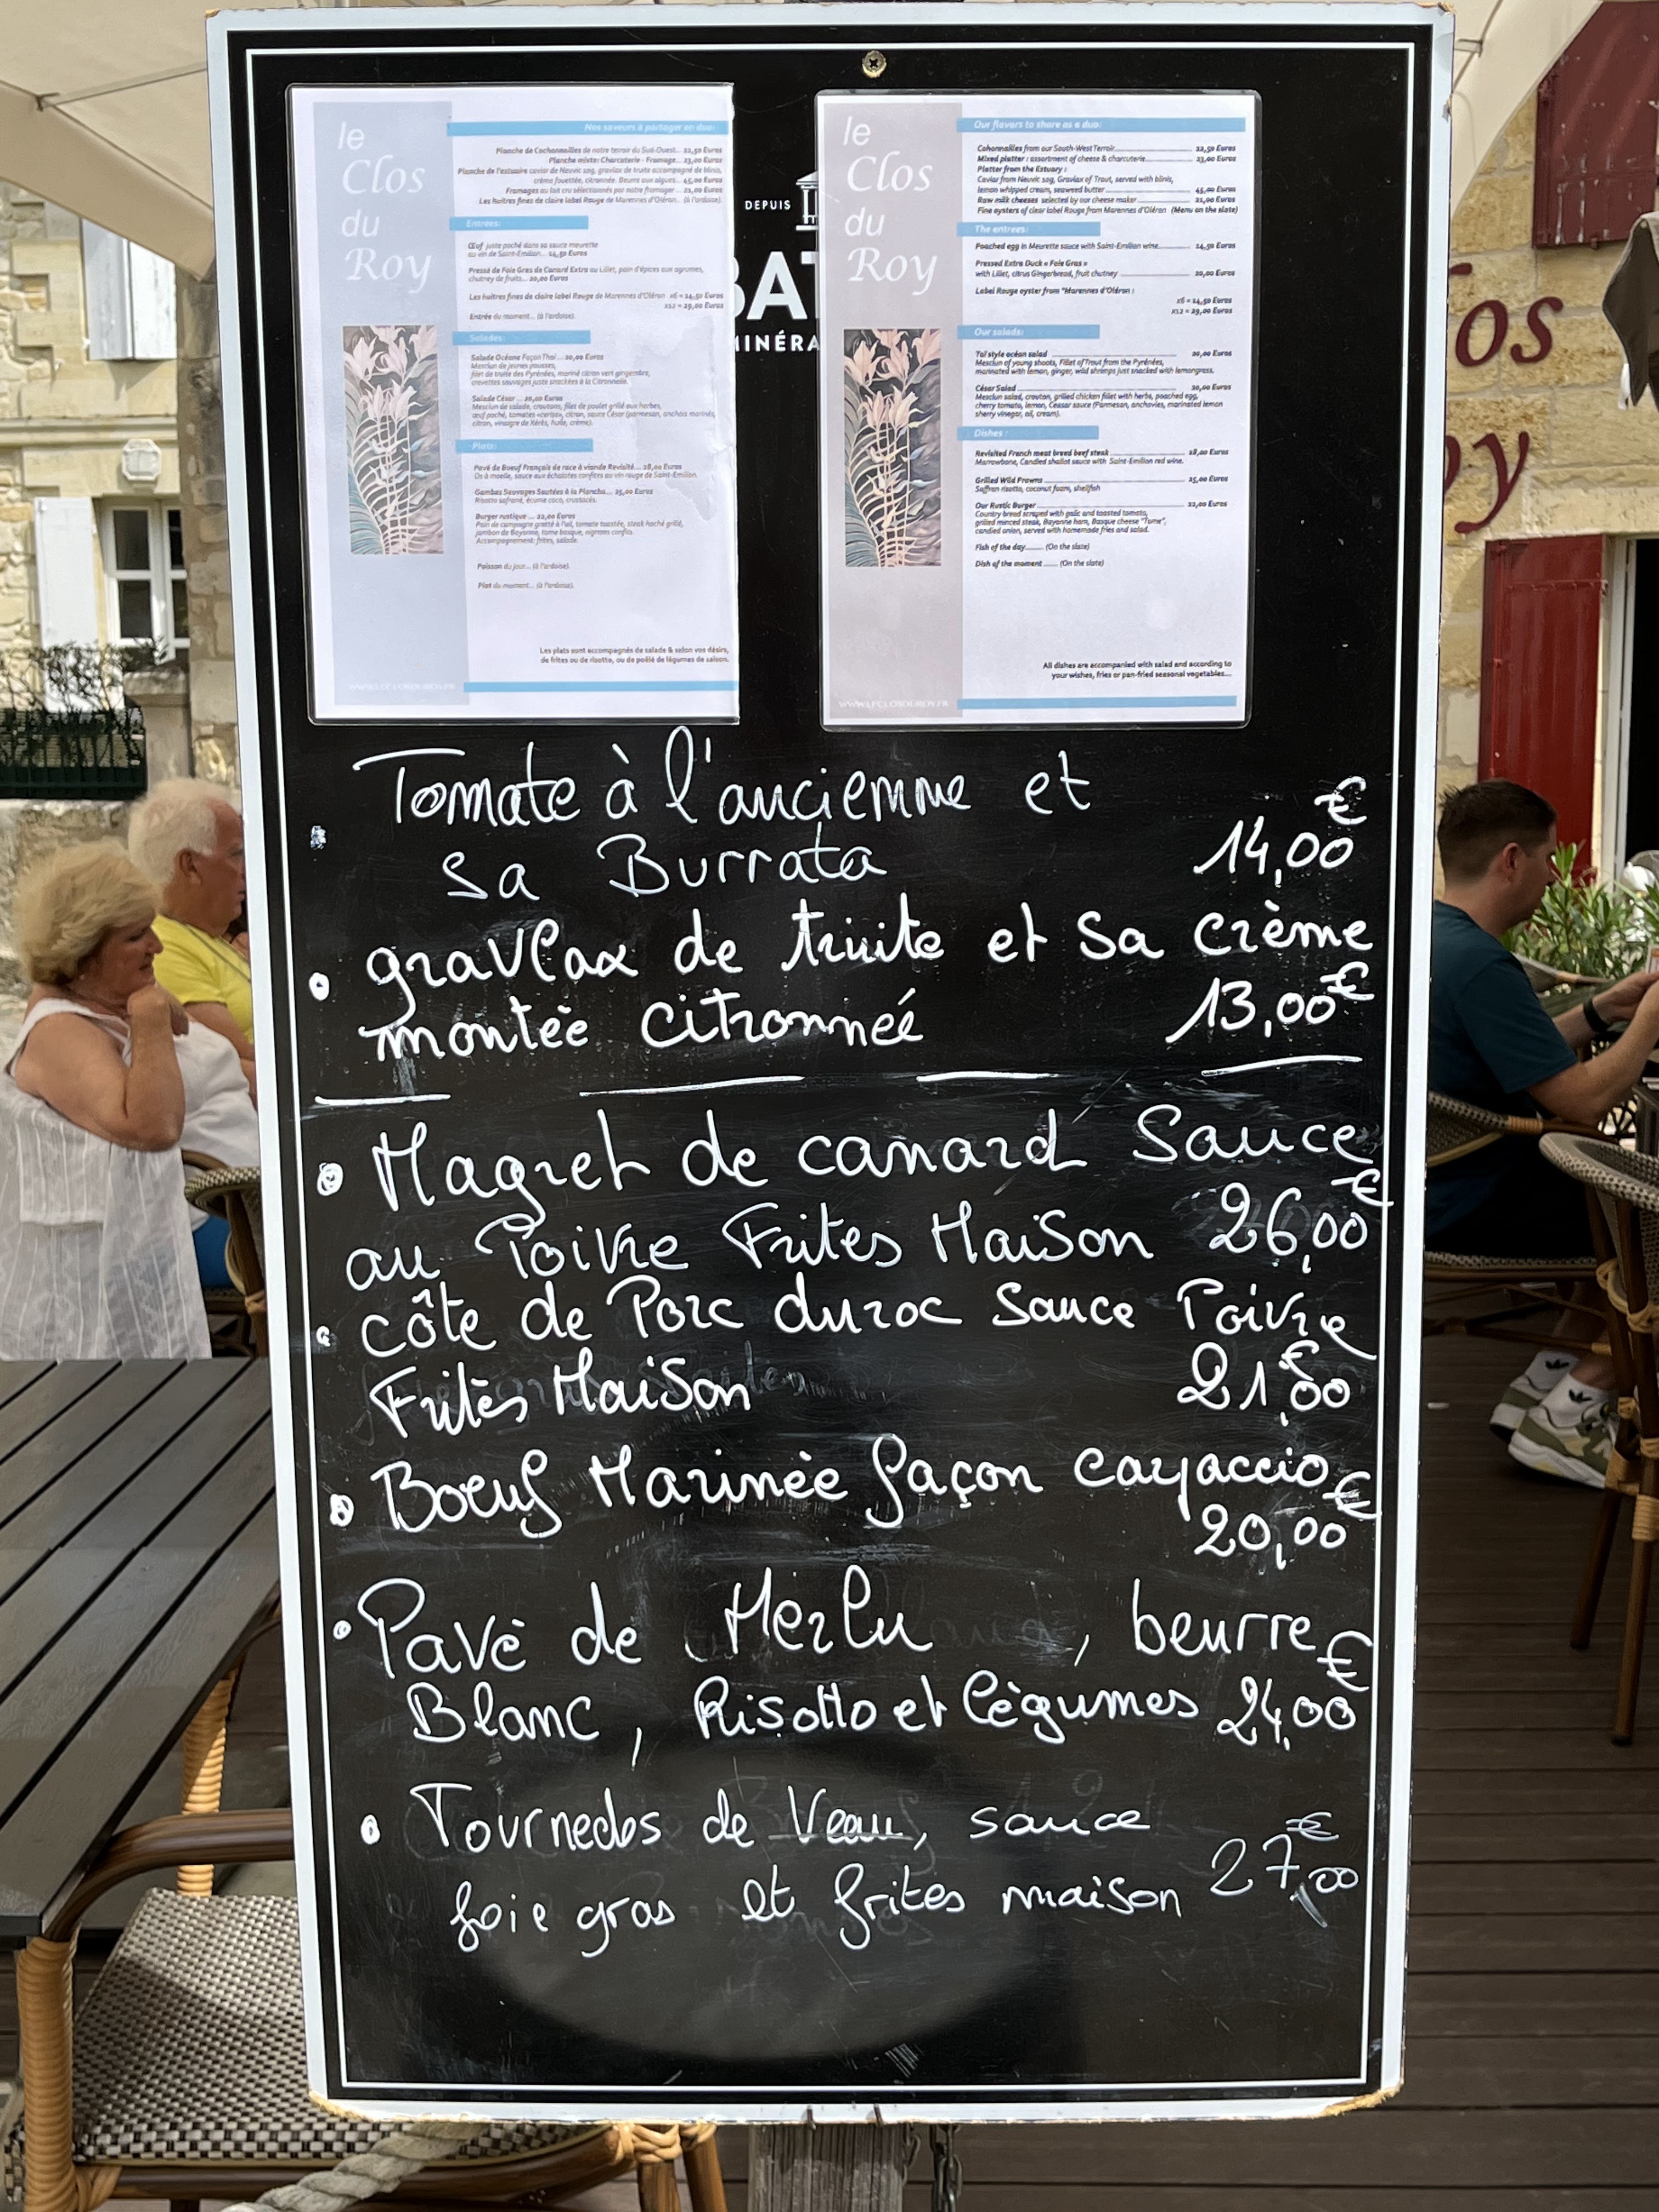 le
Clos
du
Roy
Nos saveurs à partager en duo:
Planche de Cochonnailles de notre terroir du Sud-Ouest... 22,50 Euros
Planche mixte: Charcuterie - Fromage... 23,00 Euros
Planche de l'estuaire caviar de Neuvic 10g, gravlax de truite accompagné de blinis,
crème fouettée, citronnée. Beurre aux algues... 45,00 Euros
Fromages au lait cru sélectionnés par notre fromager ... 21,00 Euros
Les huîtres fines de claire label Rouge de Marennes d'Oléron... (à l'ardoise).
Entrées:
Œuf juste poché dans sa sauce meurette
au vin de Saint-Emilion... 14,50 Euros
Pressé de Foie Gras de Canard Extra au Lillet, pain d'épices aux agrumes,
chutney de fruits... 20,00 Euros
Les huîtres fines de claire label Rouge de Marennes d'Oléron x6 = 14,50 Euros
x12 = 29,00 Euros
Entrée du moment... (à l'ardoise).
Salades:
Salade Océane Façon Thaï ... 20,00 Euros
Mesclun de jeunes pousses,
filet de truite des Pyrénées, mariné citron vert gingembre,
crevettes sauvages juste snackées à la Citronnelle.
Salade César ... 20,00 Euros
Mesclun de salade, croutons, filet de poulet grillé aux herbes,
œuf poché, tomates «cerise», citron, sauce César (parmesan, anchois marinés,
citron, vinaigre de Xérès, huile, crème).
Plats:
Pavé de Boeuf Français de race à viande Revisité... 28,00 Euros
Os à moelle, sauce aux échalotes confites au vin rouge de Saint-Emilion.
Gambas Sauvages Sautées à la Plancha... 25,00 Euros
Risotto safrané, écume coco, crustacés.
Burger rustique ... 22,00 Euros
Pain de campagne gratté à l'ail, tomate toastée, steak haché grillé,
jambon de Bayonne, tome basque, oignons confits.
Accompagnement: frites, salade.
Poisson du jour... (à l'ardoise).
Plat du moment... (à l'ardoise).
Les plats sont accompagnés de salade & selon vos désirs,
de frites ou de risotto, ou de poêlé de légumes de saison.
WWW.LECLOSDUROY.FR
DEPUIS
BAT
MINÉRA
le
Clos
du
Roy
Our flavors to share as a duo:
Cohonnailles from our South-West Terroir 22,50 Euros
Mixed platter : assortment of cheese & charcuterie 23,00 Euros
Platter from the Estuary :
Caviar from Neuvic 10g, Gravlax of Trout, served with blinis,
lemon whipped cream, seaweed butter 45,00 Euros
Raw milk cheeses selected by our cheese maker 21,00 Euros
Fine oysters of clear label Rouge from Marennes d'Oléron (Menu on the slate)
The entrees:
Poached egg in Meurette sauce with Saint-Emilion wine 14,50 Euros
Pressed Extra Duck « Foie Gras »
with Lillet, citrus Gingerbread, fruit chutney 20,00 Euros
Label Rouge oyster from "Marennes d'Oléron :
x6 = 14,50 Euros
x12 = 29,00 Euros
Our salads:
Taï style océan salad 20,00 Euros
Mesclun of young shoots, Fillet of Trout from the Pyrénées,
marinated with lemon, ginger, wild shrimps just snacked with lemongrass.
César Salad 20,00 Euros
Mesclun salad, crouton, grilled chicken fillet with herbs, poached egg,
cherry tomato, lemon, Ceasar sauce (Parmesan, anchovies, marinated lemon
sherry vinegar, oil, cream).
Dishes :
Revisited French meat breed beef steak 28,00 Euros
Marrowbone, Candied shallot sauce with Saint-Emilion red wine.
Grilled Wild Prawns 25,00 Euros
Saffron risotto, coconut foam, shellfish
Our Rustic Burger 22,00 Euros
Country bread scraped with galic and toasted tomato,
grilled minced steak, Bayonne ham, Basque cheese "Tome",
candied onion, served with homemade fries and salad.
Fish of the day....... (On the slate)
Dish of the moment ...... (On the slate)
All dishes are accompanied with salad and according to
your wishes, fries or pan-fried seasonal vegetables...
WWW.LECLOSDUROY.FR
los
oy
Tomate à l'ancienne et
sa Burrata 14,00€
• gravlax de truite et Sa Crème
montée Citronnée 13,00€
• Magret de canard Sauce
au Poivre Frites Maison 26,00€
• côte de Porc duroc Sauce Poivre
Frites Maison 21,00€
• Boeuf Marinée façon Caryaccio
20,00€
• Pavé de Merlu, beurre
Blanc, Risotto et légumes 24,00€
• Tournedos de Veau, sauce
foie gras et frites maison 27,00€